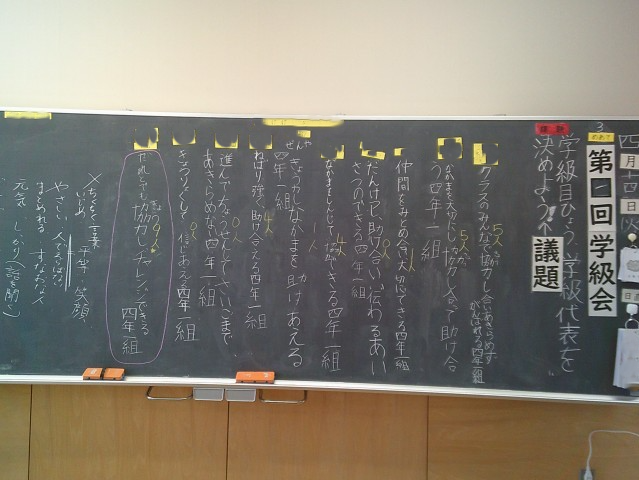 四月十四日
めあて
第一回学級会
議題
学級目ひょう、学級代表を
決めよう!
クラスのみんなで協力し合いあきらめず
がんばれる四年一組
5人
なかまを大切にし協力し合って助け合
う四年一組
5人
仲間をみとめ合い大切にできる四年一組
1人
だんけつ助け合い伝わるあい
さつのできる四年一組
なかまをしんじて協力できる四年一組
4人
ぜんや
きょうかしなかまを助けあえる
四年一組
1人
ねばり強く助け合える四年一組
4人
進んで
さいごまで
あきらめない四年一組
0人
きょうりょくして信じあえる四年一組
0人
だれとでも協力しチャレンジできる
四年一組
9人
×ちくちく言葉
いじめ
平等 笑顔
やさしい人
まとめれる すなおな人
元気 しっかり(話を聞く)